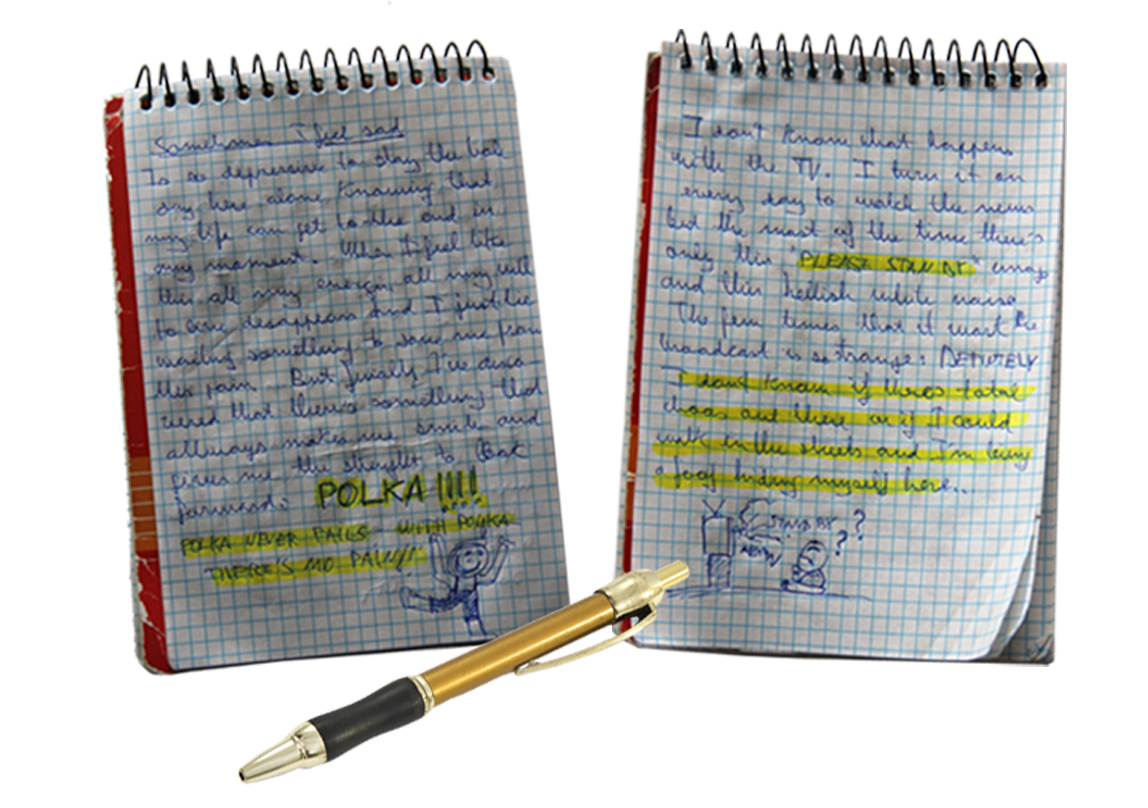 Sometimes I feel sad
Is so depressive to stay the hole
day here alone knowing that
my life can get to the end in
any moment. When I feel like
this all my energy, all my will
to live disappears and I just lie
waiting something to save me from
this pain. But finally I've disco
vered that there's something that
allways makes me smile and
gives me the strenght to look
forward:
POLKA !!!!
POLKA NEVER FAILS WITH POLKA
THERE'S NO PAIN!!
I don't know what happens
with the TV. I turn it on
every day to watch the news
but the most of the time there's
only this "PLEASE STAND BY" image
and this hellish white noise
The few times that it the
broadcast is so strange:
I don't know if theres total
chaos out there or if I could
walk in the streets and I'm being
a foog hiding myself here...
STAND BY ?
? ?